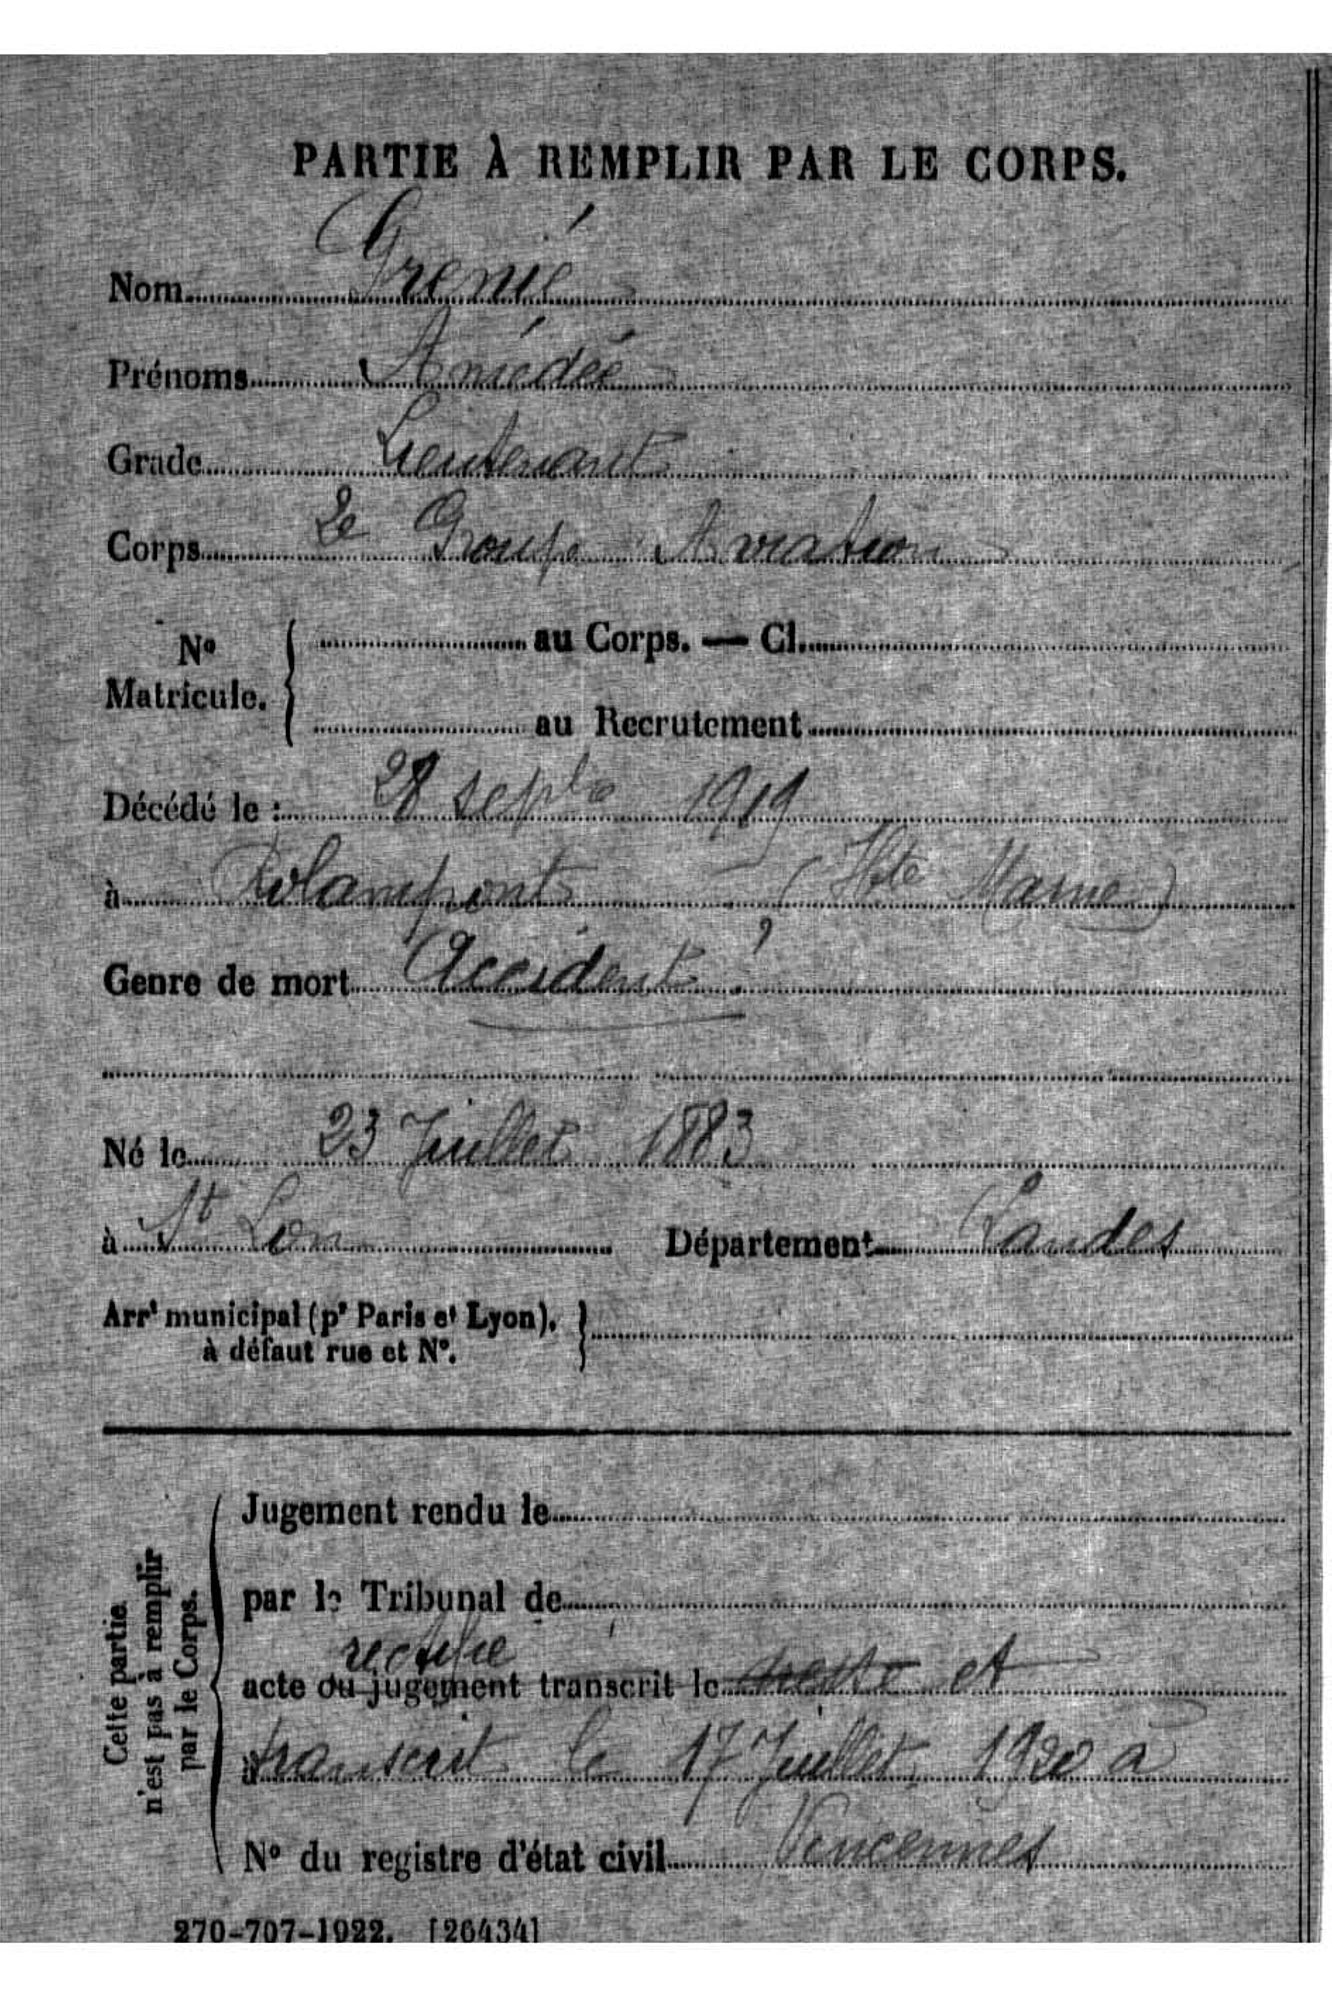 PARTIE À REMPLIR PAR LE CORPS.
Nom Grenié
Prénoms Amédée
Grade Lieutenant
Corps 2e Groupe Aviation
No Matricule. au Corps. — Cl.
au Recrutement
Décédé le : 28 septbe 1919
à Rolampont (Hte Marne)
Genre de mort Accident
Né le 23 Juillet 1883
à St Lon Département Landes
Arrt municipal (pr Paris et Lyon),
à défaut rue et No.
Cette partie
n'est pas à remplir
par le Corps.
Jugement rendu le
par le Tribunal de
rectifié
acte ou jugement transcrit le et
à transcrit le 17 Juillet 1920 à
No du registre d'état civil Vincennes
270-707-1922. [26434]